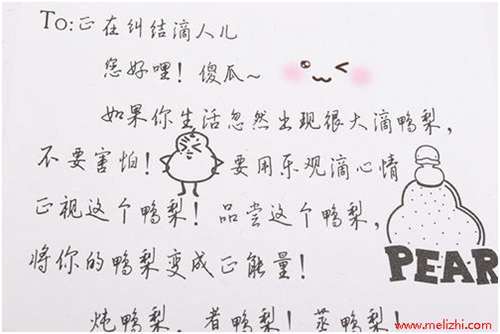 To:正在纠结滴人儿
您好哩！傻瓜~
如果你生活忽然出现很大滴鸭梨，
不要害怕！要用乐观滴心情
正视这个鸭梨！品尝这个鸭梨，
将你的鸭梨变成正能量！
PEAR
炖鸭梨，煮鸭梨！蒸鸭梨！
www.melizhi.com